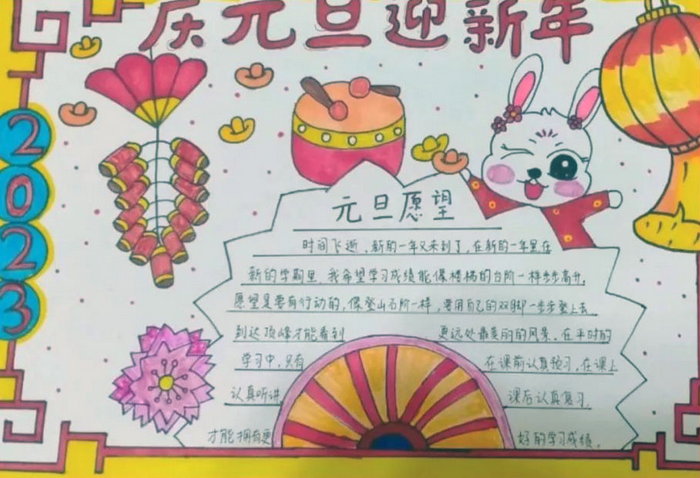 庆元旦迎新年
2023
元旦愿望
时间飞逝，新的一年又来到了，在新的一年里在
新的学期里，我希望学习成绩能像楼梯的台阶一样步步高升，
愿望是要有行动的，像登山石阶一样，要用自己的双脚一步步登上去
到达顶峰才能看到 更远处最美丽的风景，在平时的
学习中，只有 在课前认真预习，在课上
认真听讲 课后认真复习，
才能拥有更 好的学习成绩。